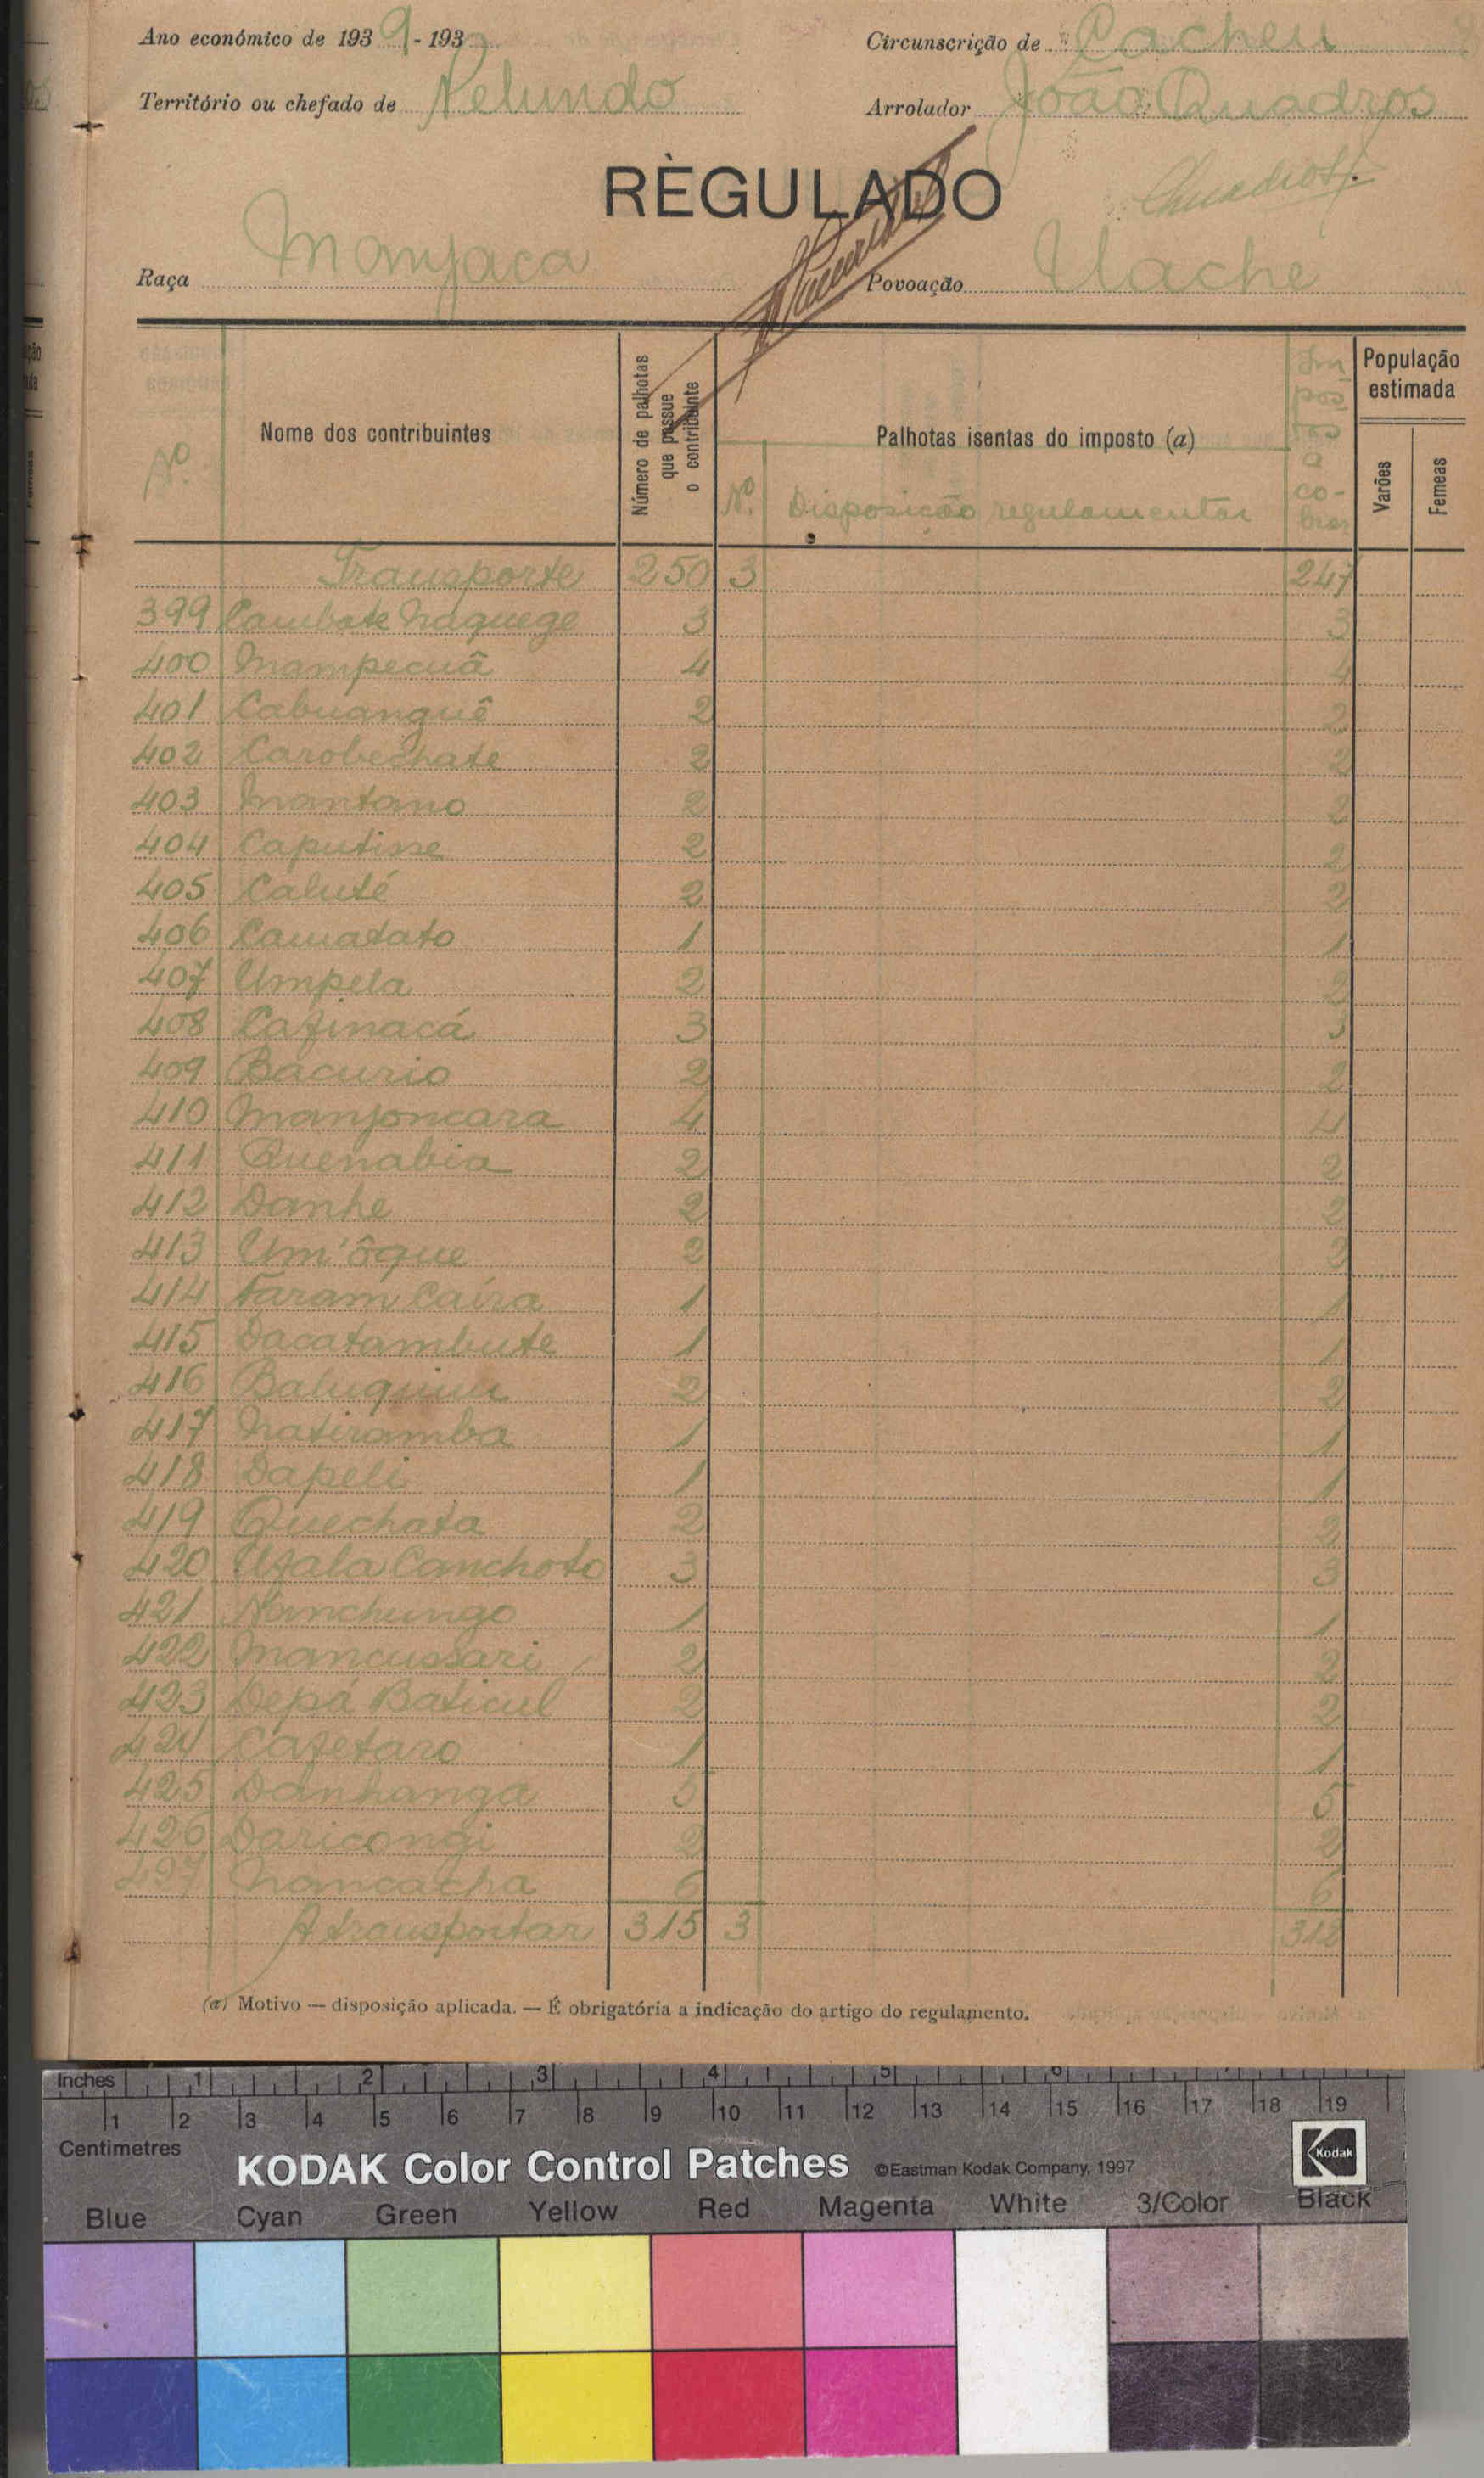 Ano económico de 1939-193
Circunscrição de Cacheu
Território ou chefado de Pelundo
Arrolador João Quadros
RÈGULADO
Quadros
Raça Manjaca
Povoação Uache
Nº
Nome dos contribuintes
Número de palhotas que possue o contribuinte
Palhotas isentas do imposto (a)
Nº. Disposição regulamentar
Impostos a cobrar
População estimada
Varões
Femeas
Transporte 250 3 247
399 Cambate Naquege 3 3
400 Mampecuâ 4 4
401 Cabuanguê 2 2
402 Carobechate 2 2
403 Nantano 2 2
404 Caputisse 2 2
405 Caluté 2 2
406 Camatato 1 1
407 Umpela 2 2
408 Cafinacá 3 3
409 Bacurio 2 2
410 Manjoncara 4 4
411 Quenabia 2 2
412 Danhe 2 2
413 Um'ôque 2 2
414 Faram Caira 1 1
415 Dacatambute 1 1
416 Baluquim 2 2
417 Natiramba 1 1
418 Dapeli 1 1
419 Quechata 2 2
420 Ufala Canchoto 3 3
421 Nanchungo 1 1
422 Mancussari 2 2
423 Depá Baticul 2 2
424 Cafetaro 1 1
425 Danhanga 5 5
426 Daricongi 2 2
427 Nancacha 6 6
A transportar 315 3 312
(a) Motivo — disposição aplicada. — É obrigatória a indicação do artigo do regulamento.
Inches 1 2 3 4 5 6
1 2 3 4 5 6 7 8 9 10 11 12 13 14 15 16 17 18 19
Centimetres
KODAK Color Control Patches ©Eastman Kodak Company, 1997 Kodak
Blue Cyan Green Yellow Red Magenta White 3/Color Black